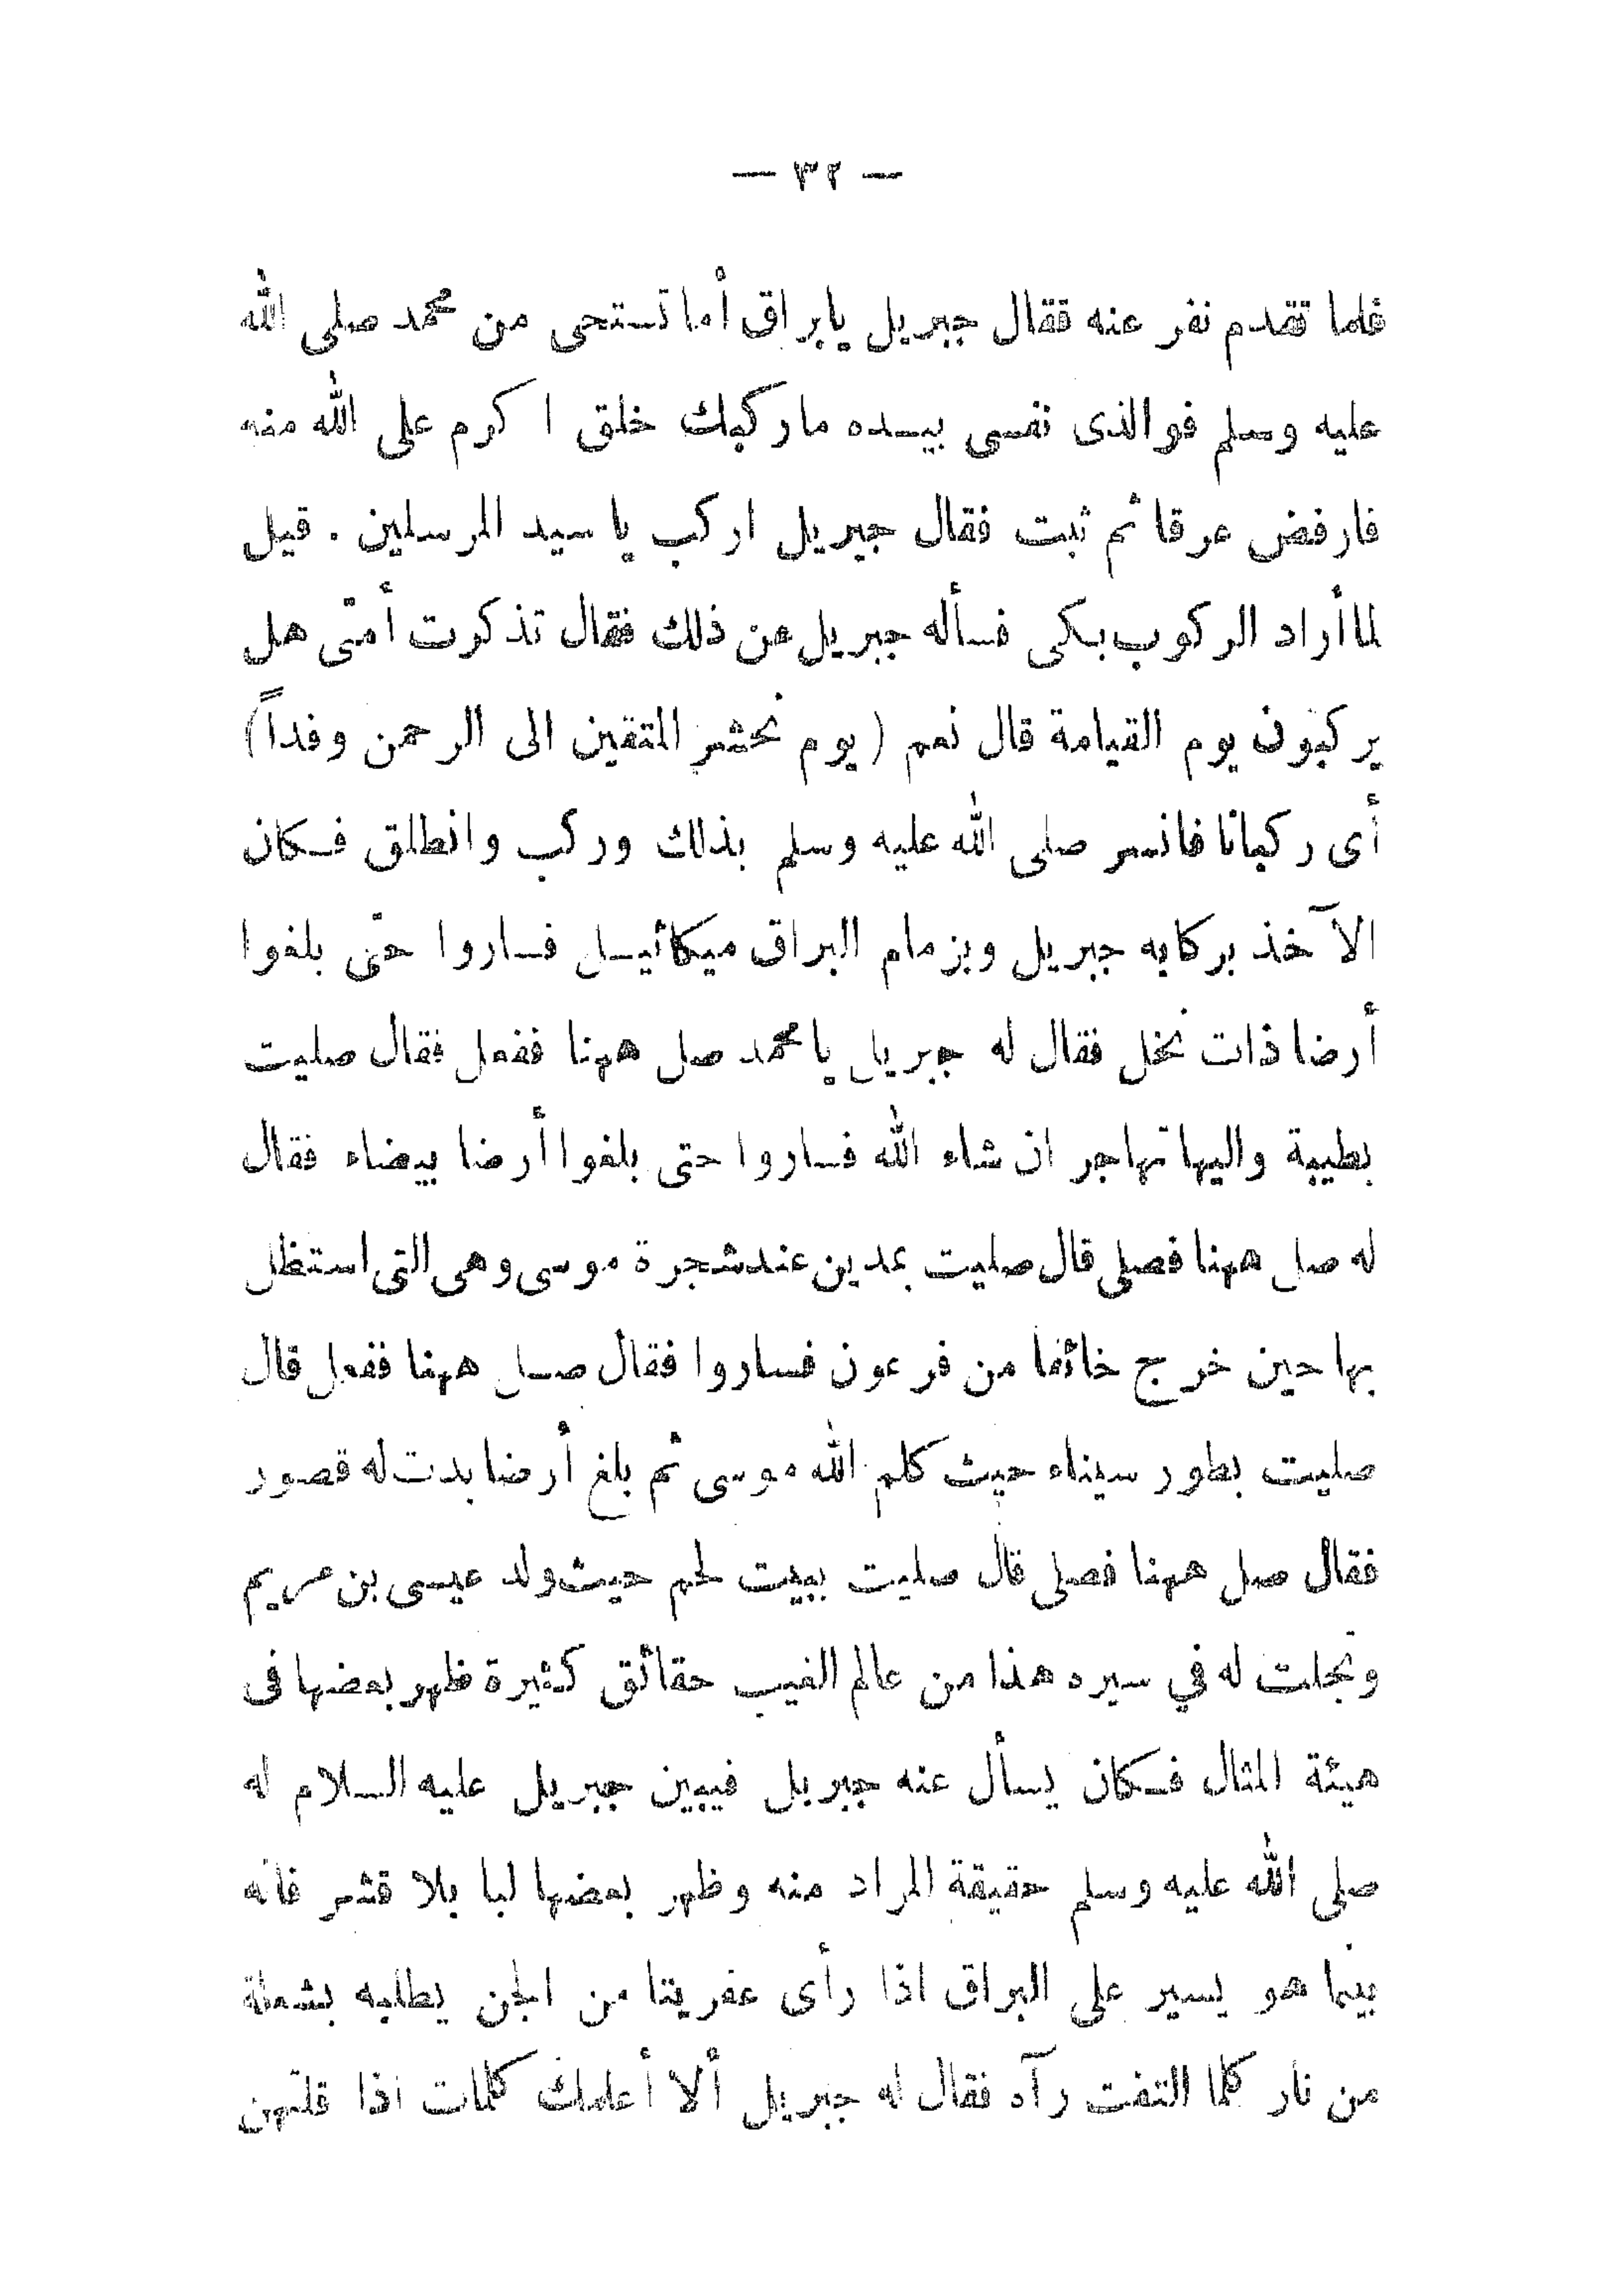 — ٣٢ —
فلما تقدم نفر عنه فقال جبريل يابراق أما تستحى من محمد صلى الله
عليه وسلم فوالذى نفسى بيده ماركبك خلق اكرم على الله منه
فارفض عرقا ثم ثبت فقال جبريل اركب يا سيد المرسلين . قيل
لما أراد الركوب بكى فسأله جبريل عن ذلك فقال تذكرت أمتى هل
يركبون يوم القيامة قال نعم (يوم نحشر المتقين الى الرحمن وفداً)
أى ركبانا فانسر صلى الله عليه وسلم بذلك وركب وانطلق فكان
الآخذ بركابه جبريل وبزمام البراق ميكائيل فساروا حتى بلغوا
أرضا ذات نخل فقال له جبريل يا محمد صل ههنا ففعل فقال صليت
بطيبة واليها تهاجر ان شاء الله فساروا حتى بلغوا أرضا بيضاء فقال
له صل ههنا فصلى قال صليت بمدين عند شجرة موسى وهى التى استظل
بها حين خرج خائفا من فرعون فساروا فقال صل ههنا ففعل قال
صليت بطور سيناء حيث كلم الله موسى ثم بلغ أرضا بدت له قصور
فقال صل ههنا فصلى قال صليت ببيت لحم حيث ولد عيسى بن مريم
وتجلت له في سيره هذا من عالم الغيب حقائق كثيرة ظهر بعضها فى
هيئة المثال فكان يسأل عنه جبريل فيبين جبريل عليه السلام له
صلى الله عليه وسلم حقيقة المراد منه وظهر بعضها لبا بلا قشر فانه
بينما هو يسير على البراق اذا رأى عفريتا من الجن يطلبه بشعلة
من نار كلما التفت رآه فقال له جبريل ألا أعلمك كلمات اذا قلتهن